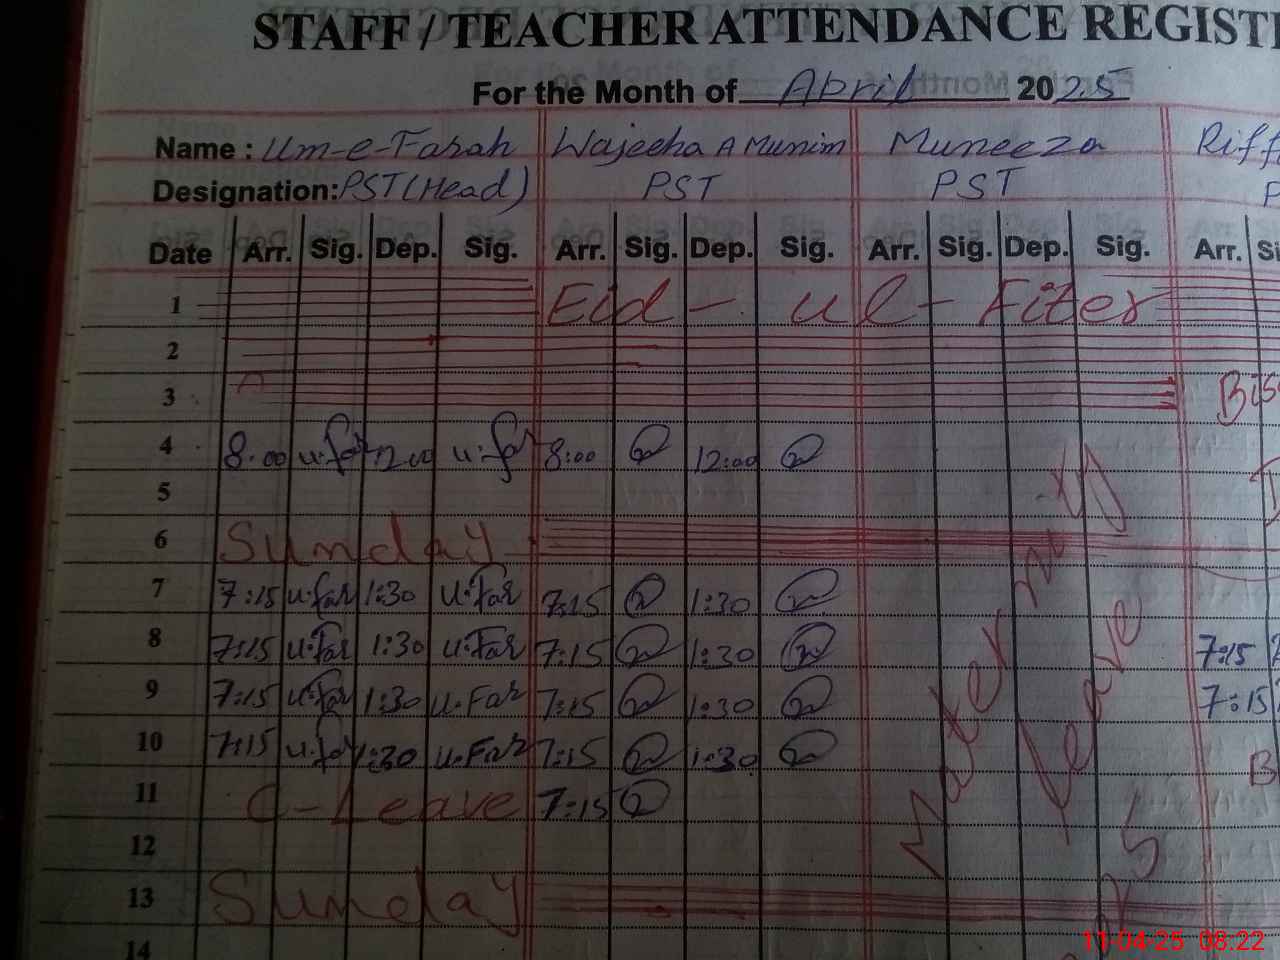 STAFF / TEACHER ATTENDANCE REGIST
For the Month of April 2025
Name : Um-e-Farah Wajeeha A Munim Muneeza Riff
Designation: PST (Head) PST PST P
Date Arr. Sig. Dep. Sig. Arr. Sig. Dep. Sig. Arr. Sig. Dep. Sig. Arr. Si
1 Eid - ul - Fiter
2
3 A Bis
4 8:00 u.far 12:00 u.far 8:00 12:00
5
6 Sunday
7 7:15 u.far 1:30 u.far 7:15 1:30
8 7:15 u.far 1:30 u.far 7:15 1:30 7:15
9 7:15 u.far 1:30 u.Far 7:15 1:30 7:15
10 7:15 u.far 1:30 u.Far 7:15 1:30 B
11 C-Leave 7:15
12
13 Sunday
14
Maternity
leave
11-04-25 08:22